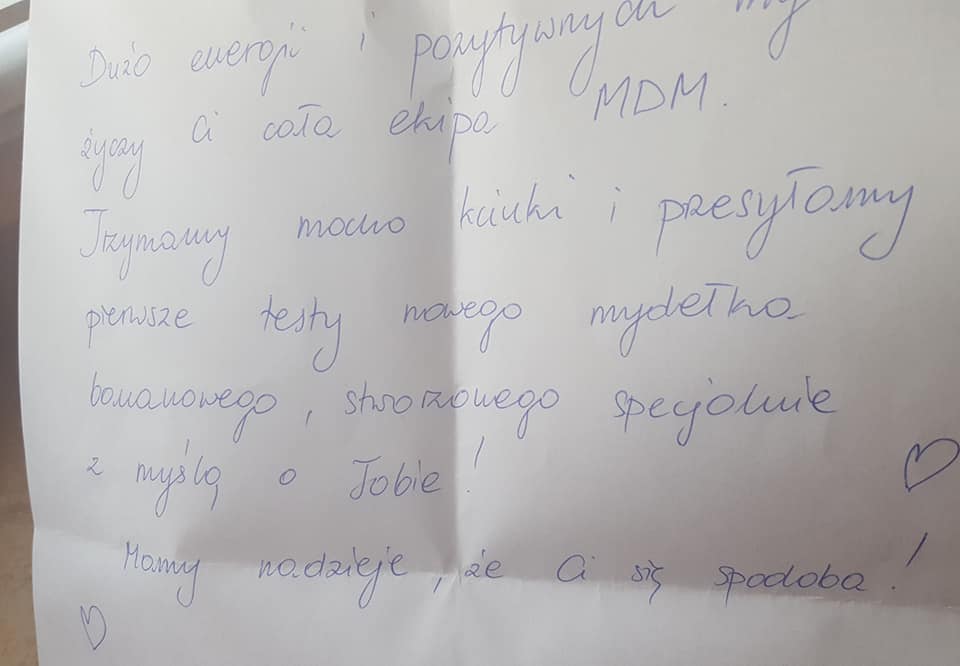 Dużo energii i pozytywnych
życzy Ci cała ekipa MDM.
Trzymamy mocno kciuki i przesyłamy
pierwsze testy nowego mydełka
bananowego, stworzonego specjalnie
z myślą o Tobie!
Mamy nadzieje, że Ci się spodoba!